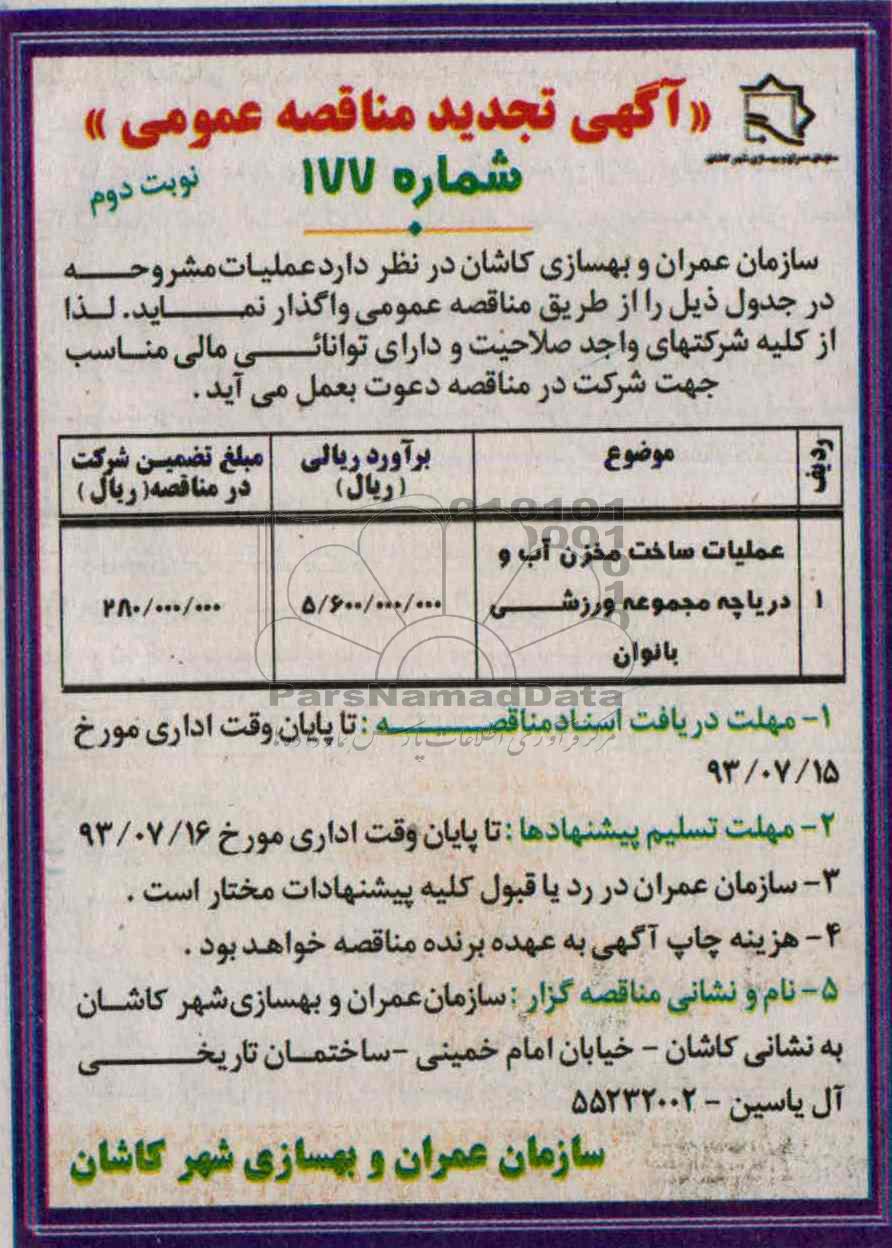 سازمان عمران و بهسازی شهر کاشان
«آگهی تجدید مناقصه عمومی»
شماره ۱۷۷
نوبت دوم
سازمان عمران و بهسازی کاشان در نظر دارد عملیات مشروحه
در جدول ذیل را از طریق مناقصه عمومی واگذار نماید. لذا
از کلیه شرکتهای واجد صلاحیت و دارای توانائی مالی مناسب
جهت شرکت در مناقصه دعوت بعمل می آید.
ردیف
موضوع
برآورد ریالی
(ریال)
مبلغ تضمین شرکت
در مناقصه(ریال)
۱
عملیات ساخت مخزن آب و
دریاچه مجموعه ورزشی
بانوان
۵/۶۰۰/۰۰۰/۰۰۰
۲۸۰/۰۰۰/۰۰۰
ParsNamadData
۱- مهلت دریافت اسنادمناقصه : تا پایان وقت اداری مورخ
۹۳/۰۷/۱۵
۲- مهلت تسلیم پیشنهادها : تا پایان وقت اداری مورخ ۹۳/۰۷/۱۶
۳- سازمان عمران در رد یا قبول کلیه پیشنهادات مختار است .
۴- هزینه چاپ آگهی به عهده برنده مناقصه خواهد بود .
۵- نام و نشانی مناقصه گزار : سازمان عمران و بهسازی شهر کاشان
به نشانی کاشان - خیابان امام خمینی -ساختمان تاریخی
آل یاسین - ۵۵۲۳۲۰۰۲
سازمان عمران و بهسازی شهر کاشان